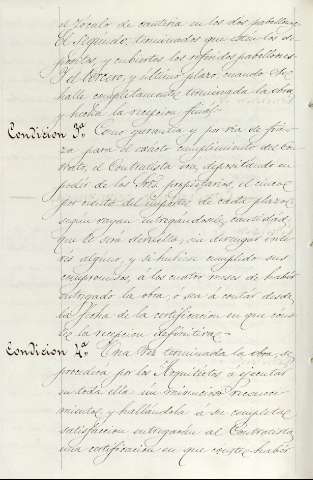 el zocalo de cantería en los dos pabellones
El segundo, terminados que esten los de-
pósitos, y cubiertos los referidos pabellones
Y el tercero, y último plazo cuando se
halle completamente terminada la obra
y hecha la recepcion final.
Condicion 3ª. Como garantía y por via de fian-
za para el exácto cumplimiento del con-
trato, el Contratista irá depositando en
poder de los Sres propietarios, el cinco
por ciento del importe de cada plazo
segun vayan entregándosele, cantidad,
que le será devuelta, sin devengar inte-
rés alguno, y si hubiese cumplido sus
compromisos, á los cuatro meses de haber
entregado la obra, ó sea á contar desde
la fecha de la certificacion en que cons-
te la recepcion definitiva.
Condicion 4ª. Una vez terminada la obra, se
procederá por los Arquitectos á ejecutar
en toda ella un minucioso reconoci-
miento, y hallándola a su completa
satisfaccion entregarán al Contratista
una certificacion en que conste haber